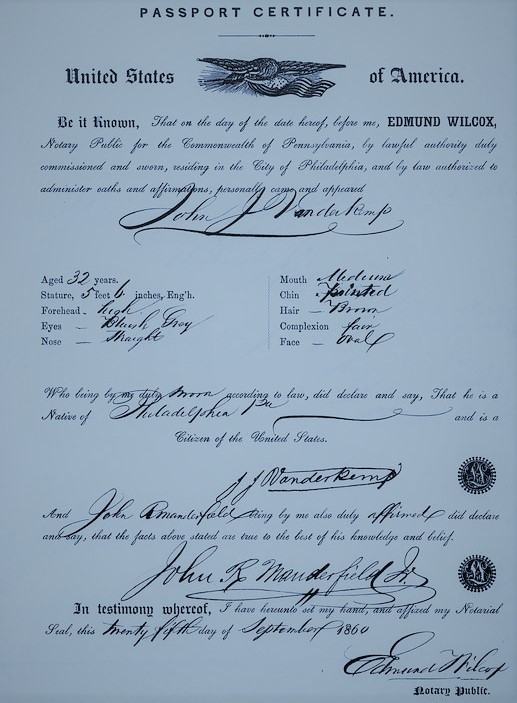 PASSPORT CERTIFICATE.
United States of America.
Be it Known, That on the day of the date hereof, before me, EDMUND WILCOX,
Notary Public for the Commonwealth of Pennsylvania, by lawful authority duly
commissioned and sworn, residing in the City of Philadelphia, and by law authorized to
administer oaths and affirmations, personally came and appeared
John J Vanderkemp
Aged 32 years.
Stature, 5 feet 6 inches, Eng'h.
Forehead - high
Eyes - Bluish Gray
Nose - Straight
Mouth - Medium
Chin - pointed
Hair - Brown
Complexion fair
Face - Oval
Who being by me duly sworn according to law, did declare and say, That he is a
Native of Philadelphia Pa and is a
Citizen of the United States.
J J Vanderkemp
And John R Manderfield being by me also duly affirmed did declare
and say, that the facts above stated are true to the best of his knowledge and belief.
John R Manderfield Jr.
In testimony whereof, I have hereunto set my hand, and affixed my Notarial
Seal, this twenty fifth day of September 1860
Edmund Wilcox
Notary Public.